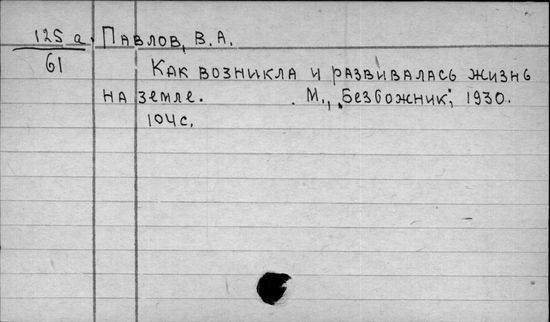 125 а. Павлов, В.А.
61
Как возникла и развивалась жизнь
на земле. М., "Безбожник", 1930.
104 с.